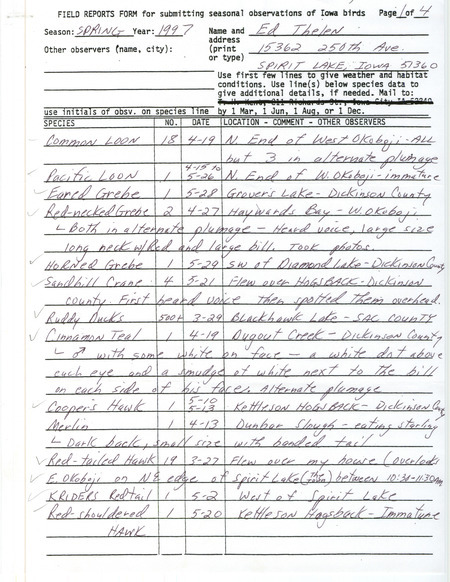 FIELD REPORTS FORM for submitting seasonal observations of Iowa birds Page 1 of 4
Season: SPRING Year: 1997 Name and Ed Thelen
address
Other observers (name, city): (print 15362 250th Ave.
or type) SPIRIT LAKE, IOWA 51360
Use first few lines to give weather and habitat
conditions. Use line(s) below species data to
give additional details, if needed. Mail to:
use initials of obsv. on species line by 1 Mar, 1 Jun, 1 Aug, or 1 Dec.
SPECIES NO. DATE LOCATION - COMMENT - OTHER OBSERVERS
Common Loon 18 4-19 N. End of West Okoboji - ALL
but 3 in alternate plumage
Pacific Loon 1 4-15 to 5-26 N. End of W. Okoboji - immature
Eared Grebe 1 5-28 Grover's Lake - Dickinson County
Red-necked Grebe 2 4-27 Haywards Bay - W. Okoboji
Both in alternate plumage - Heard voice, large size
long neck w/red and large bill. Took photos.
HORNED Grebe 1 5-29 SW of Diamond Lake - Dickinson County
Sandhill Crane 4 5-21 Flew over HOGSBACK - Dickinson
county. First heard voice then spotted them overhead.
Ruddy Ducks 500+ 3-29 Blackhawk Lake - SAC COUNTY
Cinnamon Teal 1 4-19 Dugout Creek - Dickinson County
♂ with some white on face - a white dot above
each eye and a smudge of white next to the bill
on each side of his face. Alternate plumage
Cooper's Hawk 1 5-10 5-13 Kettleson HOGSBACK - Dickinson Cty
Merlin 1 4-13 Dunbar Slough - eating starling
Dark back, small size with banded tail
Red-tailed Hawk 19 3-27 Flew over my house (overlooks
E. Okoboji on NE edge of Spirit Lake (The town) between 10:30-11:30AM
KRIDERS Redtail 1 5-2 West of Spirit Lake
Red-shouldered 1 5-20 Kettleson Hogsback - Immature
HAWK